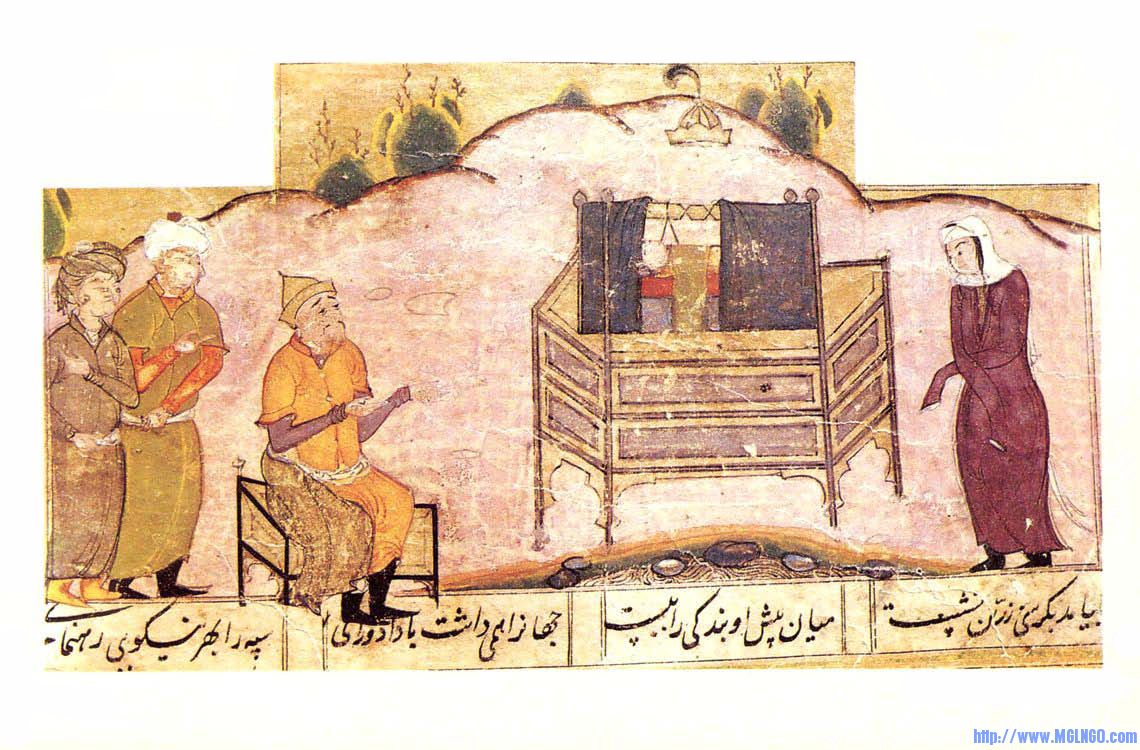 بیامد بکرسی زرّین نشست میان پیش او بندکی را ببست جهانرا همی داشت با داد ورای سپه را بهر نیکویی رهنمای
http://www.MGLNGO.com